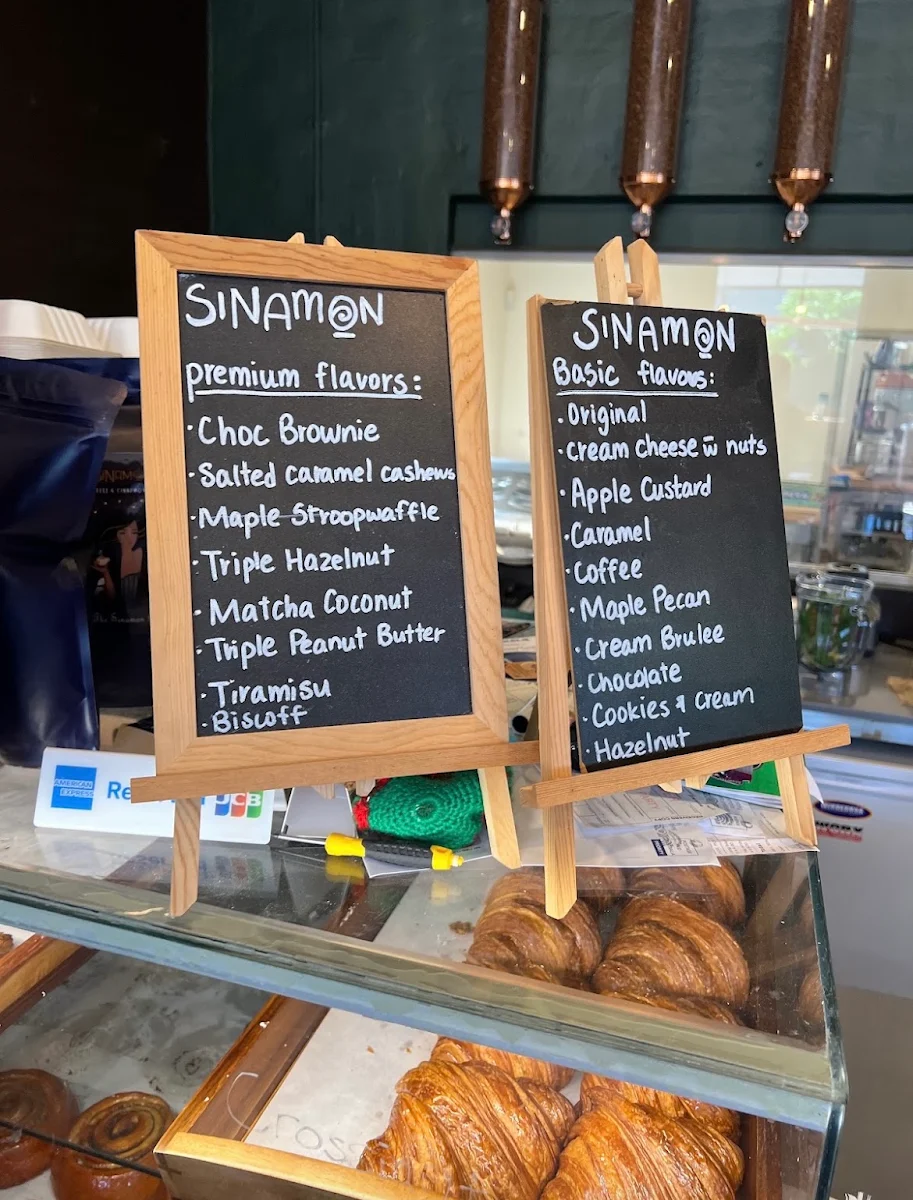 SINAMON
premium flavors:
· Choc Brownie
· Salted caramel cashews
· Maple Stroopwaffle
· Triple Hazelnut
· Matcha Coconut
· Triple Peanut Butter
· Tiramisu
· Biscoff
SINAMON
Basic flavors:
· Original
· cream cheese w̄ nuts
· Apple Custard
· Caramel
· Coffee
· Maple Pecan
· Cream Brulee
· Chocolate
· Cookies & Cream
· Hazelnut
AMERICAN
EXPRESS
JCB